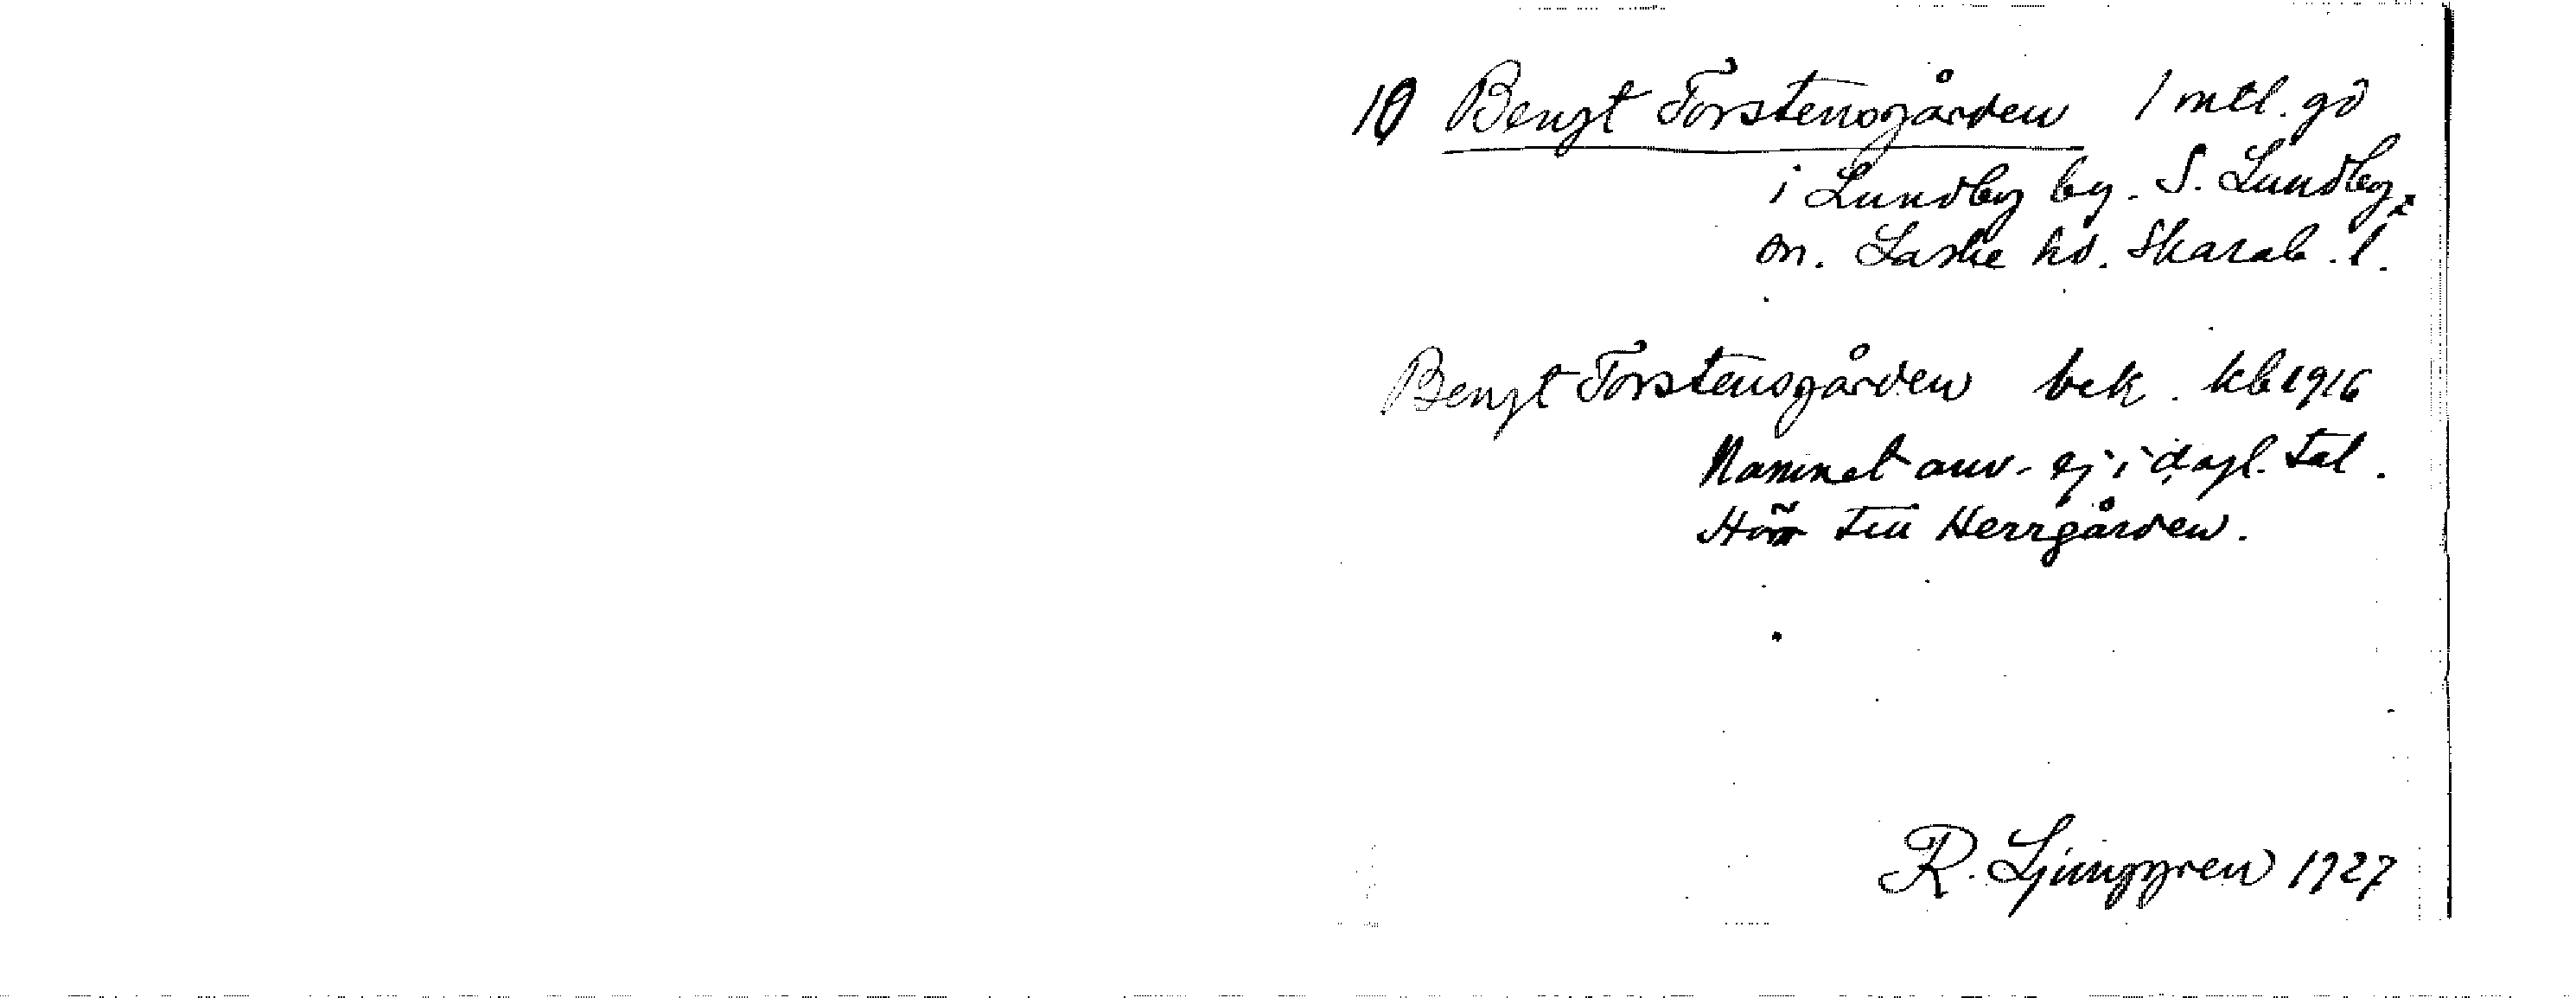 10 Bengt Torstensgården 1 mtl. gd
i Lundby by. S. Lundby
sn. Laske hd. Skarab. l.
Bengt Torstensgården bek. kb 1916
Namnet anv. ej i dagl. tal.
Hör till Herrgården.
R. Ljunggren 1927